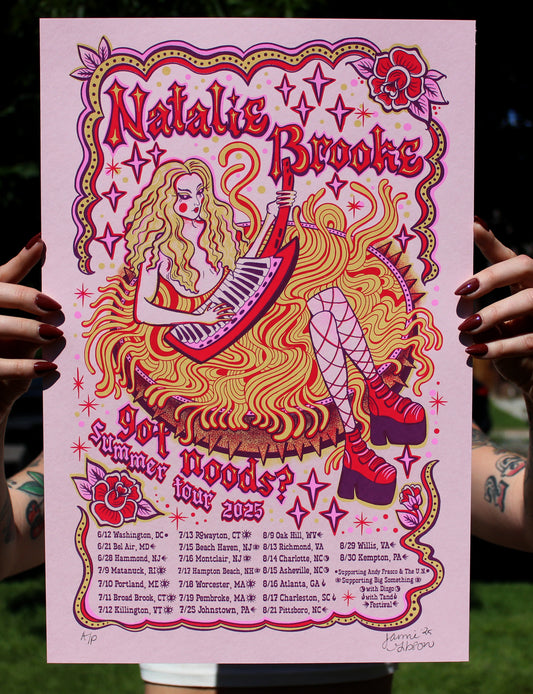 Natalie
Brooke
got noods?
Summer tour 2025
6/12 Washington, DC
6/21 Bel Air, MD
6/28 Hammond, NJ
7/9 Matanuck, RI
7/10 Portland, ME
7/11 Broad Brook, CT
7/12 Killington, VT
7/13 Rowayton, CT
7/15 Beach Haven, NJ
7/16 Montclair, NJ
7/17 Hampton Beach, NH
7/18 Worcester, MA
7/19 Pembroke, MA
7/25 Johnstown, PA
8/9 Oak Hill, WV
8/13 Richmond, VA
8/14 Charlotte, NC
8/15 Asheville, NC
8/16 Atlanta, GA
8/17 Charleston, SC
8/21 Pittsboro, NC
8/29 Willis, VA
8/30 Kempton, PA
Supporting Andy Frasco & The U.N.
Supporting Big Something
with Dingo
with Tand
Festival
A/P
Jamie